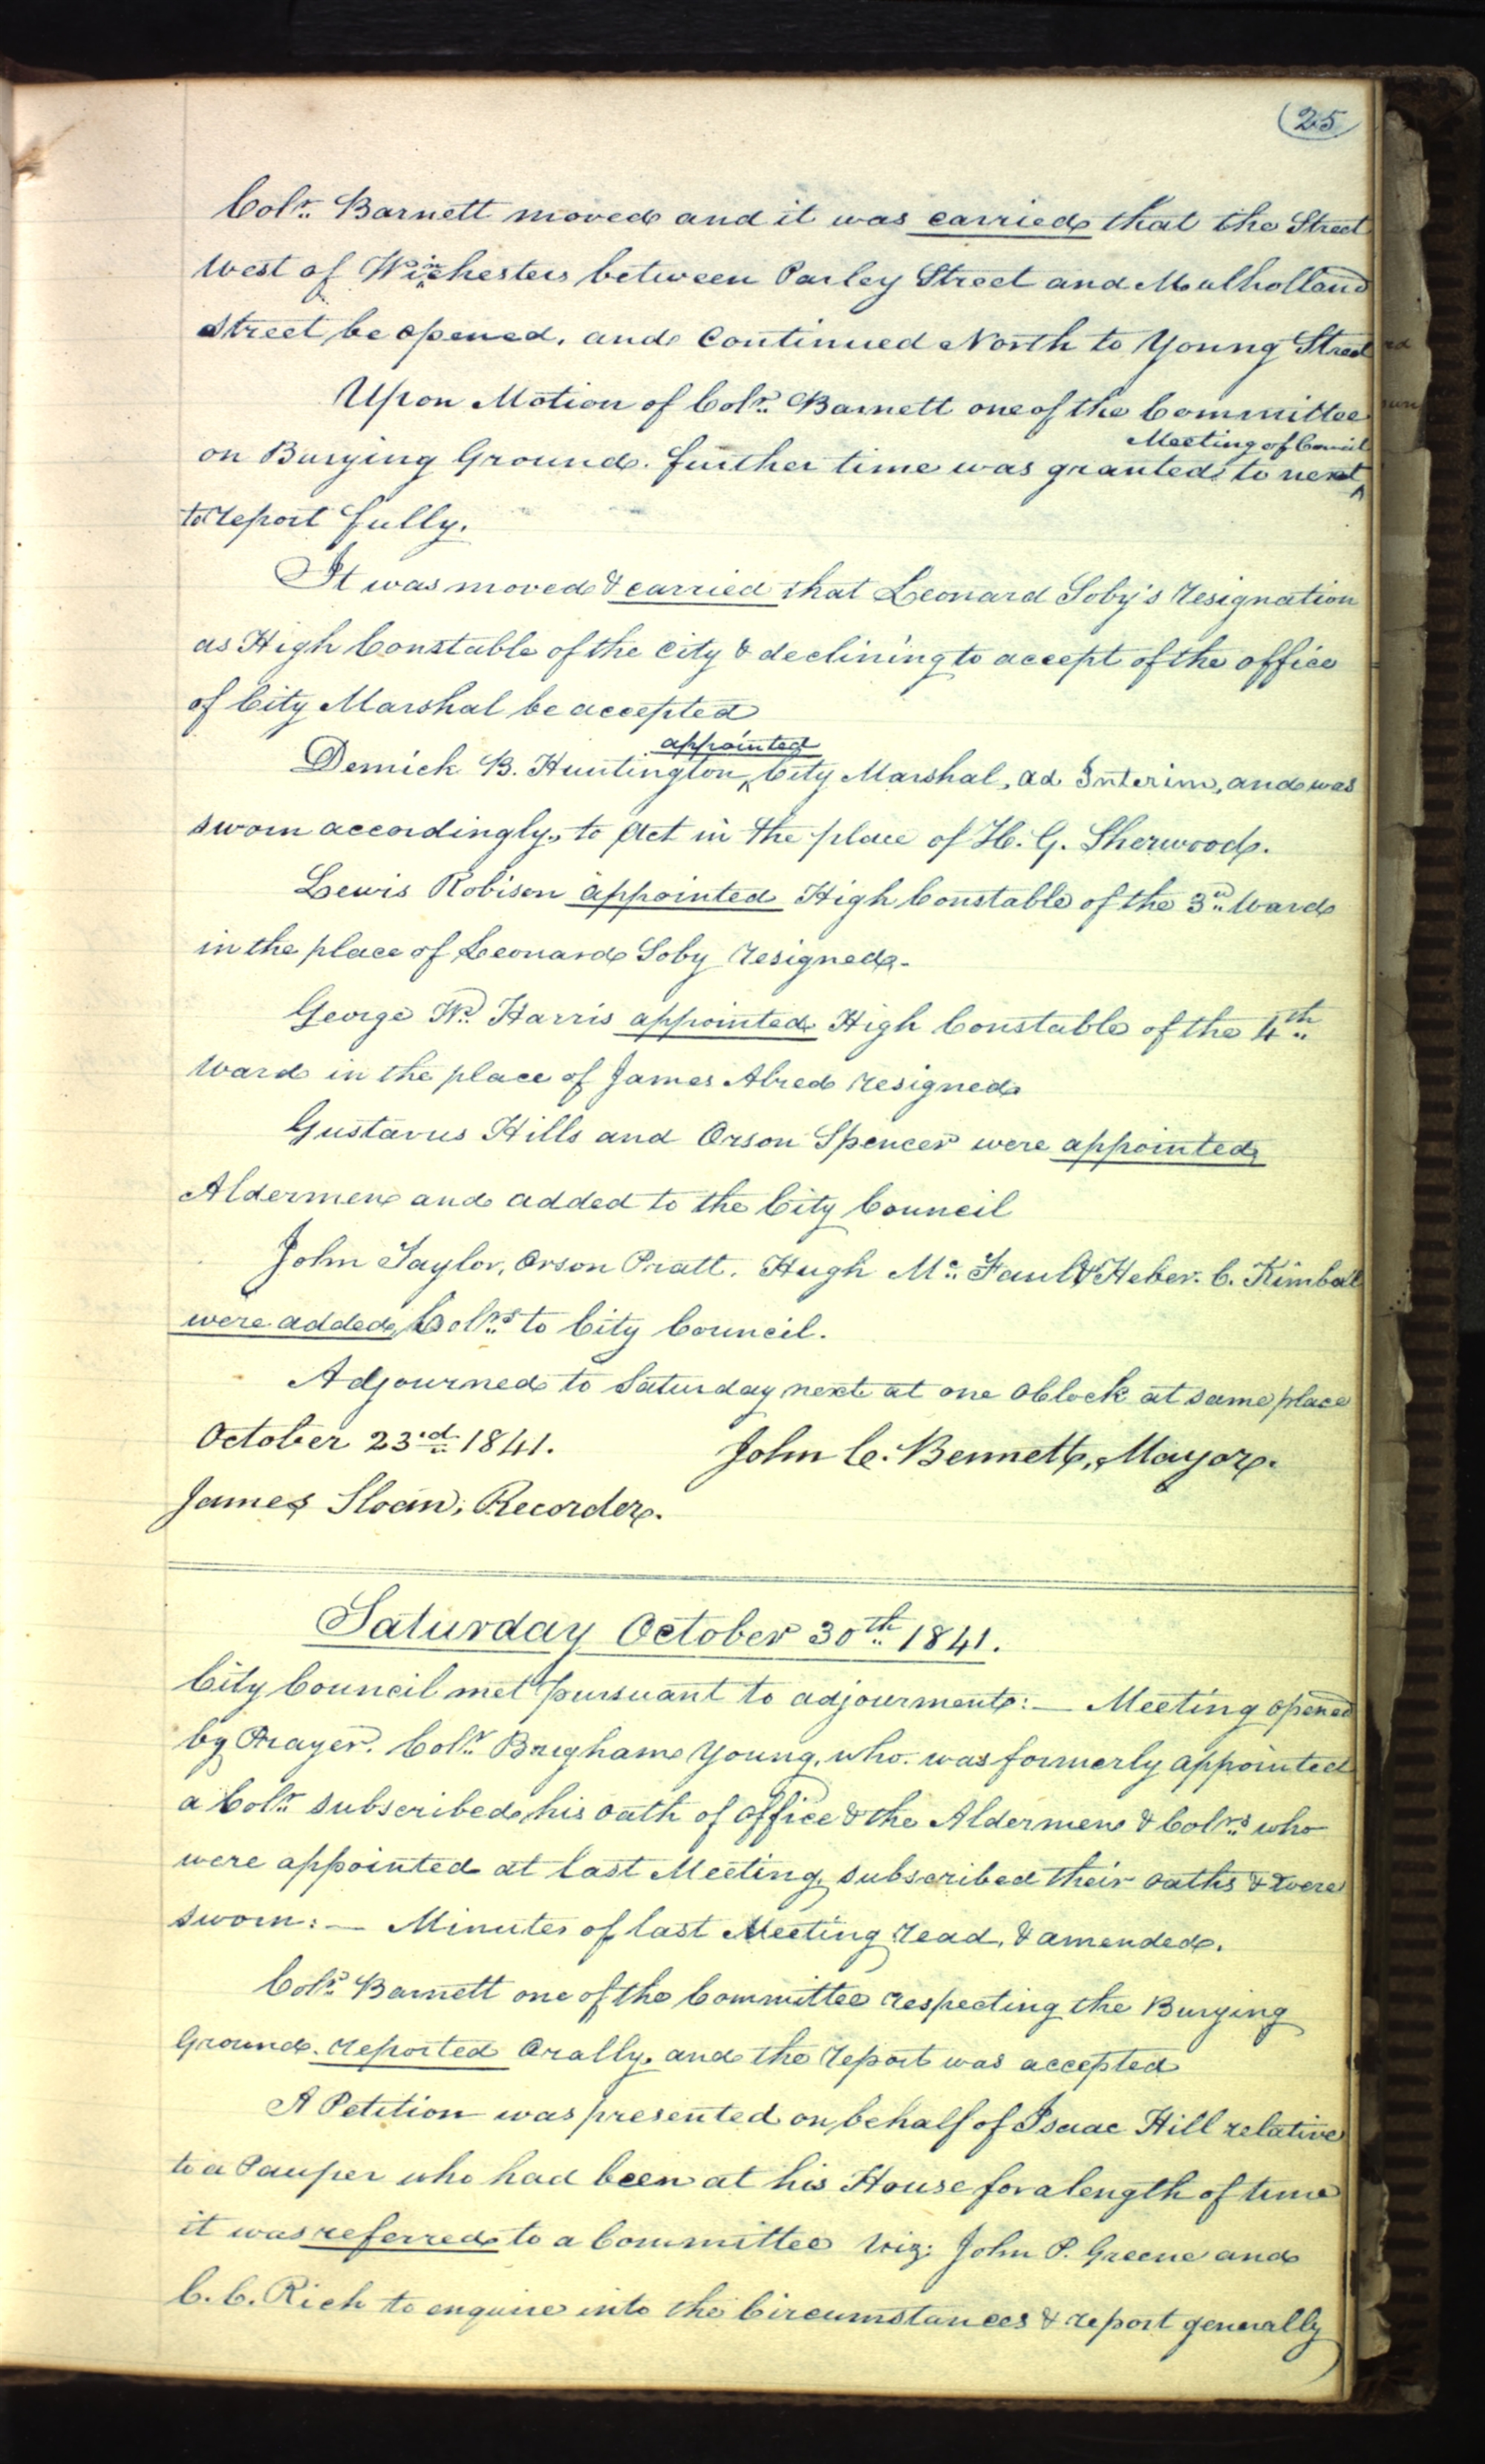 25
Colr. Barnett moved and it was carried that the Street
West of Winchesters between Parley Street and Mulholland
Street be opened, and Continued North to Young Street
Upon Motion of Colr. Barnett one of the Committee
Meeting of Council
on Burying Ground. further time was granted to next
to report fully.
It was moved & carried that Leonard Soby's resignation
as High Constable of the City & declining to accept of the office
of City Marshal be accepted
appointed
Demick B. Huntington, City Marshal, ad Interim, and was
sworn accordingly, to Act in the place of H. G. Sherwood.
Lewis Robison appointed High Constable of the 3rd Ward
in the place of Leonard Soby resigned.
George W. Harris appointed High Constable of the 4th
Ward in the place of James Alred resigned
Gustavus Hills and Orson Spencer were appointed
Aldermen and added to the City Council
John Taylor, Orson Pratt, Hugh Mc. Faul & Heber. C. Kimball
were added Colrs to City Council.
Adjourned to Saturday next at one oClock at same place
October 23rd 1841. John C. Bennett, Mayor.
James Sloan, Recorder.
Saturday October 30th 1841.
City Council met pursuant to adjourment:— Meeting opened
by Prayer. Colr. Brigham Young, who was formerly appointed
a Colr. subscribed his oath of office & the Aldermen & Colrs who
were appointed at last Meeting, subscribed their oaths & were
sworn:— Minutes of last Meeting read, & amended.
Colr. Barnett one of the Committee respecting the Burying
Ground. reported Orally, and the report was accepted
A Petition was presented on behalf of Isaac Hill relative
to a Pauper who had been at his House for a length of time
it was referred to a Committee Viz: John P. Greene and
C. C. Rich to enquire into the Circumstances & report generally